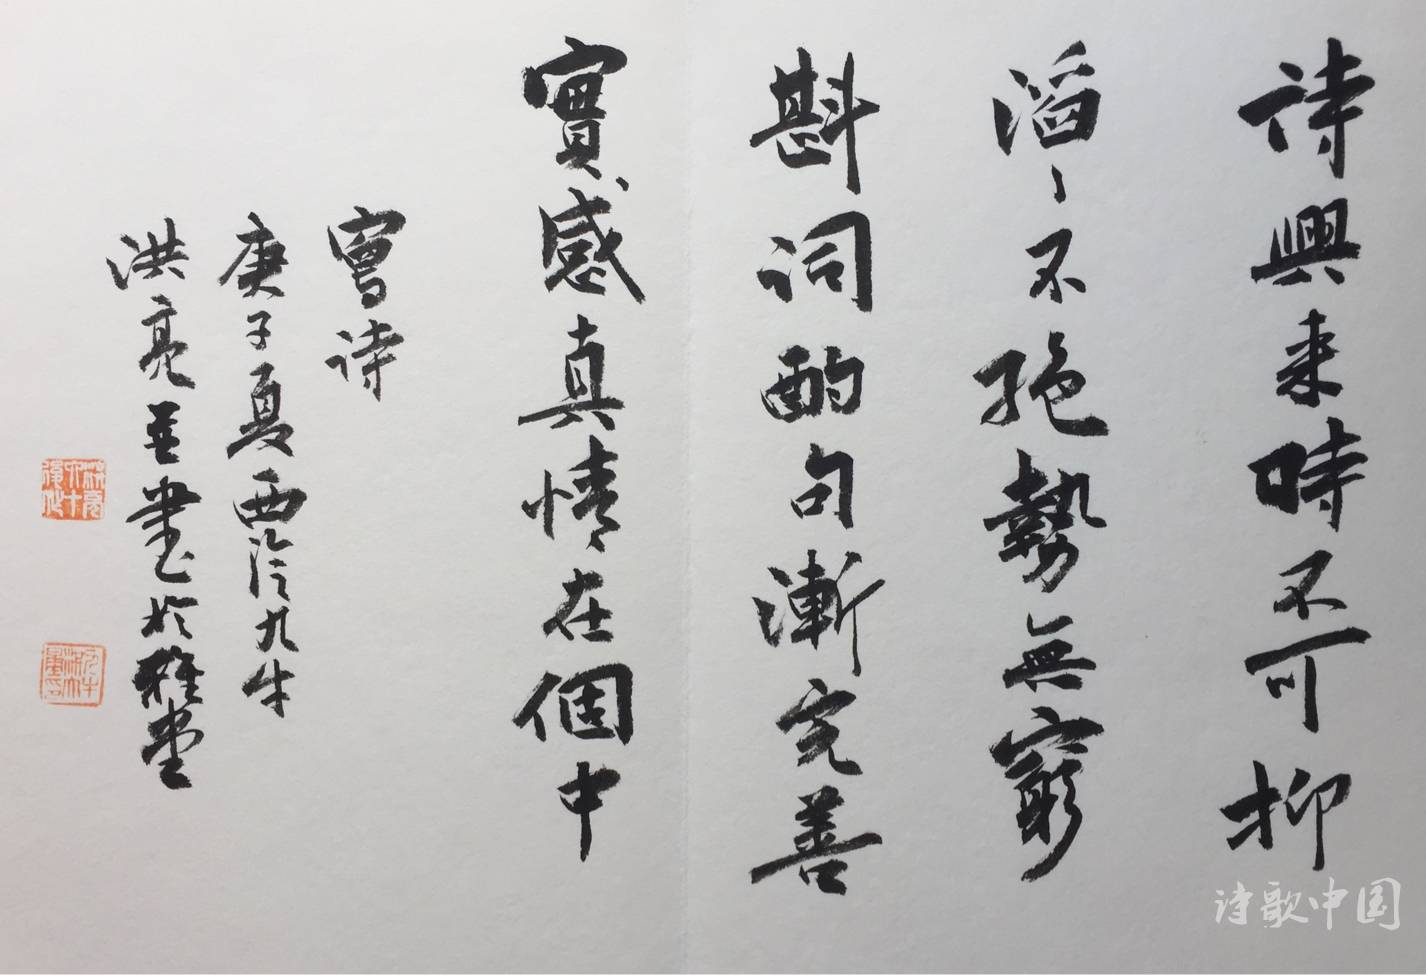 詩興来時不可抑
滔〻不絶勢無窮
斟詞酌句漸完善
實感真情在個中
寫詩
庚子夏西泠九牛
洪亮并書於雅堂
诗歌中国